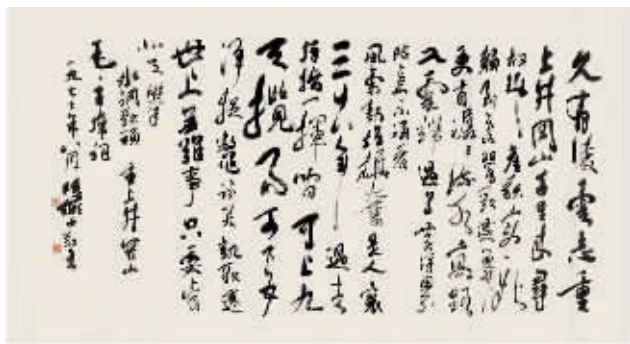 久有凌雲志重
上井岡山千里來尋
故地舊貌變新
顏到處鶯歌燕舞
更有潺潺流水高路
入雲端過了黃洋界
險處不須看
風雷動旌旗奮是人寰
三十八年過去
彈指一揮間可上九
天攬月可下五
洋捉鱉談笑凱歌還
世上無難事只要肯
登攀
水調歌頭 重上井岡山
毛主席詞
一九七七年八月